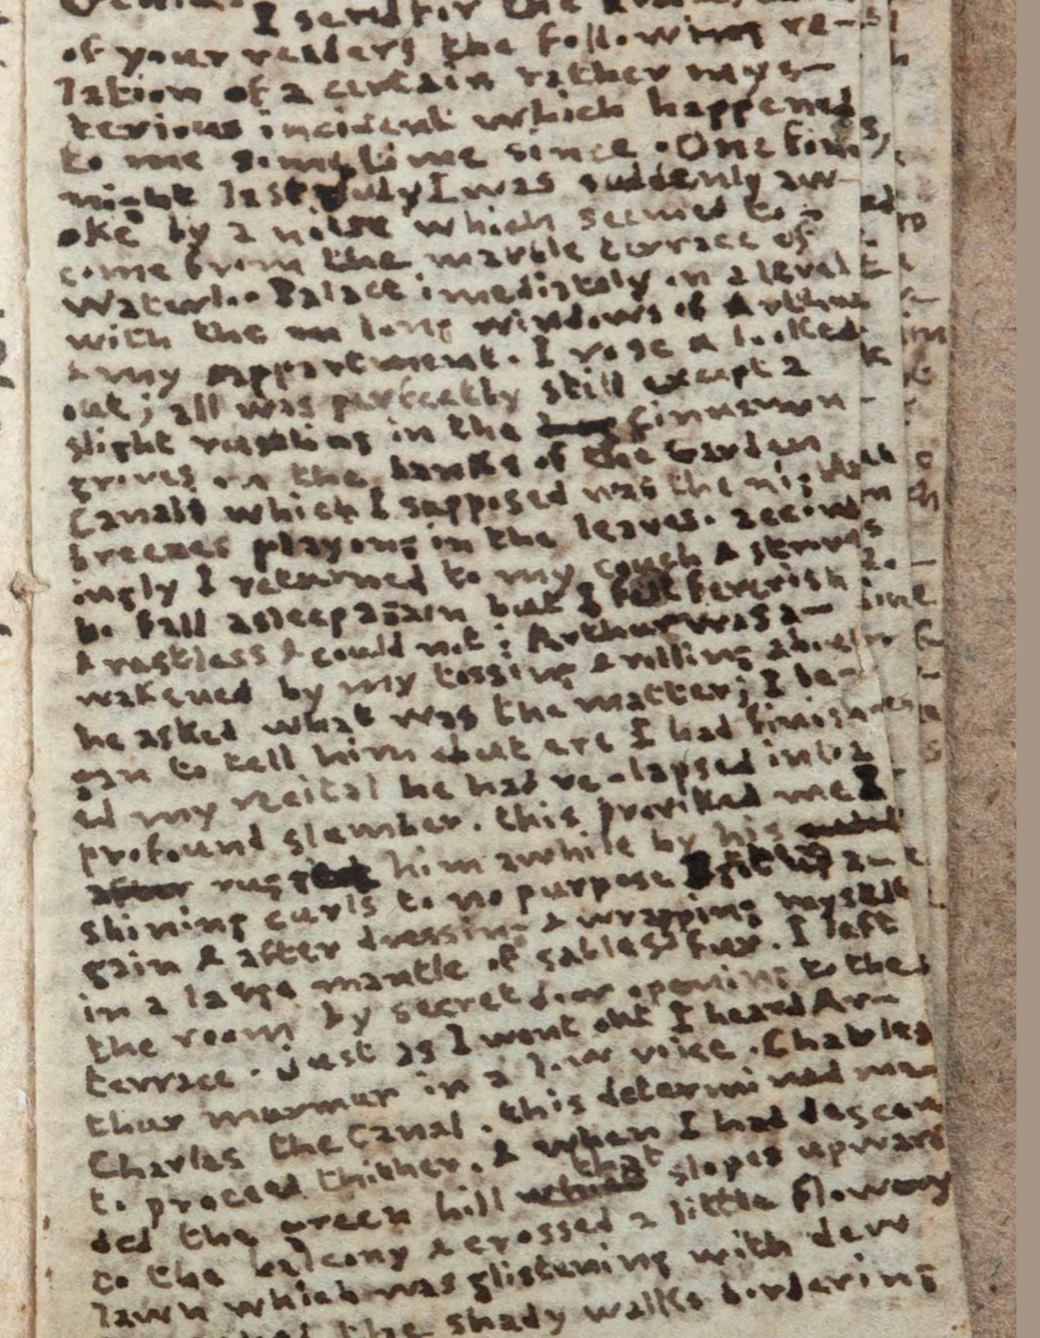 I send for the
of your readers the following re-
lation of a certain rather mys-
terious incident which happened
to me sometime since . One fine
night last July I was suddenly aw-
oke by a noise which seemed to
come from the marble terrace of
Waterloo Palace imediately on a level
with the long windows of Arthur
& my appartment . I rose & looked
out ; all was perfectly still except a
slight rustling in the cinnamon
groves on the banks of the Garden
Canals which I supposed was the night
breezes playing in the leaves . accord
ingly I returned to my couch & strove
to fall asleep again but I felt feverish
& restless & could not ; Arthur was a-
wakened by my tossing & rolling about
he asked what was the matter ; I be-
gan to tell him but ere I had finish
ed my recital he had re-lapsed into a
profound slumber . this provoked me I
after him awhile by his
shining curls to no purpose I got up a-
gain & after dressing & wrapping myself
in a large mantle of sables fur . I left
the room by secret door opening to the
terrace . Just as I went out I heard Ar-
thur murmur in a low voice . Charles
Charles the Canal . this determined me
to proceed thither . & when I had descen
ded the green hill that slopes upward
to the balcony & crossed a little flowery
lawn which was glistening with dew
the shady walks bordering